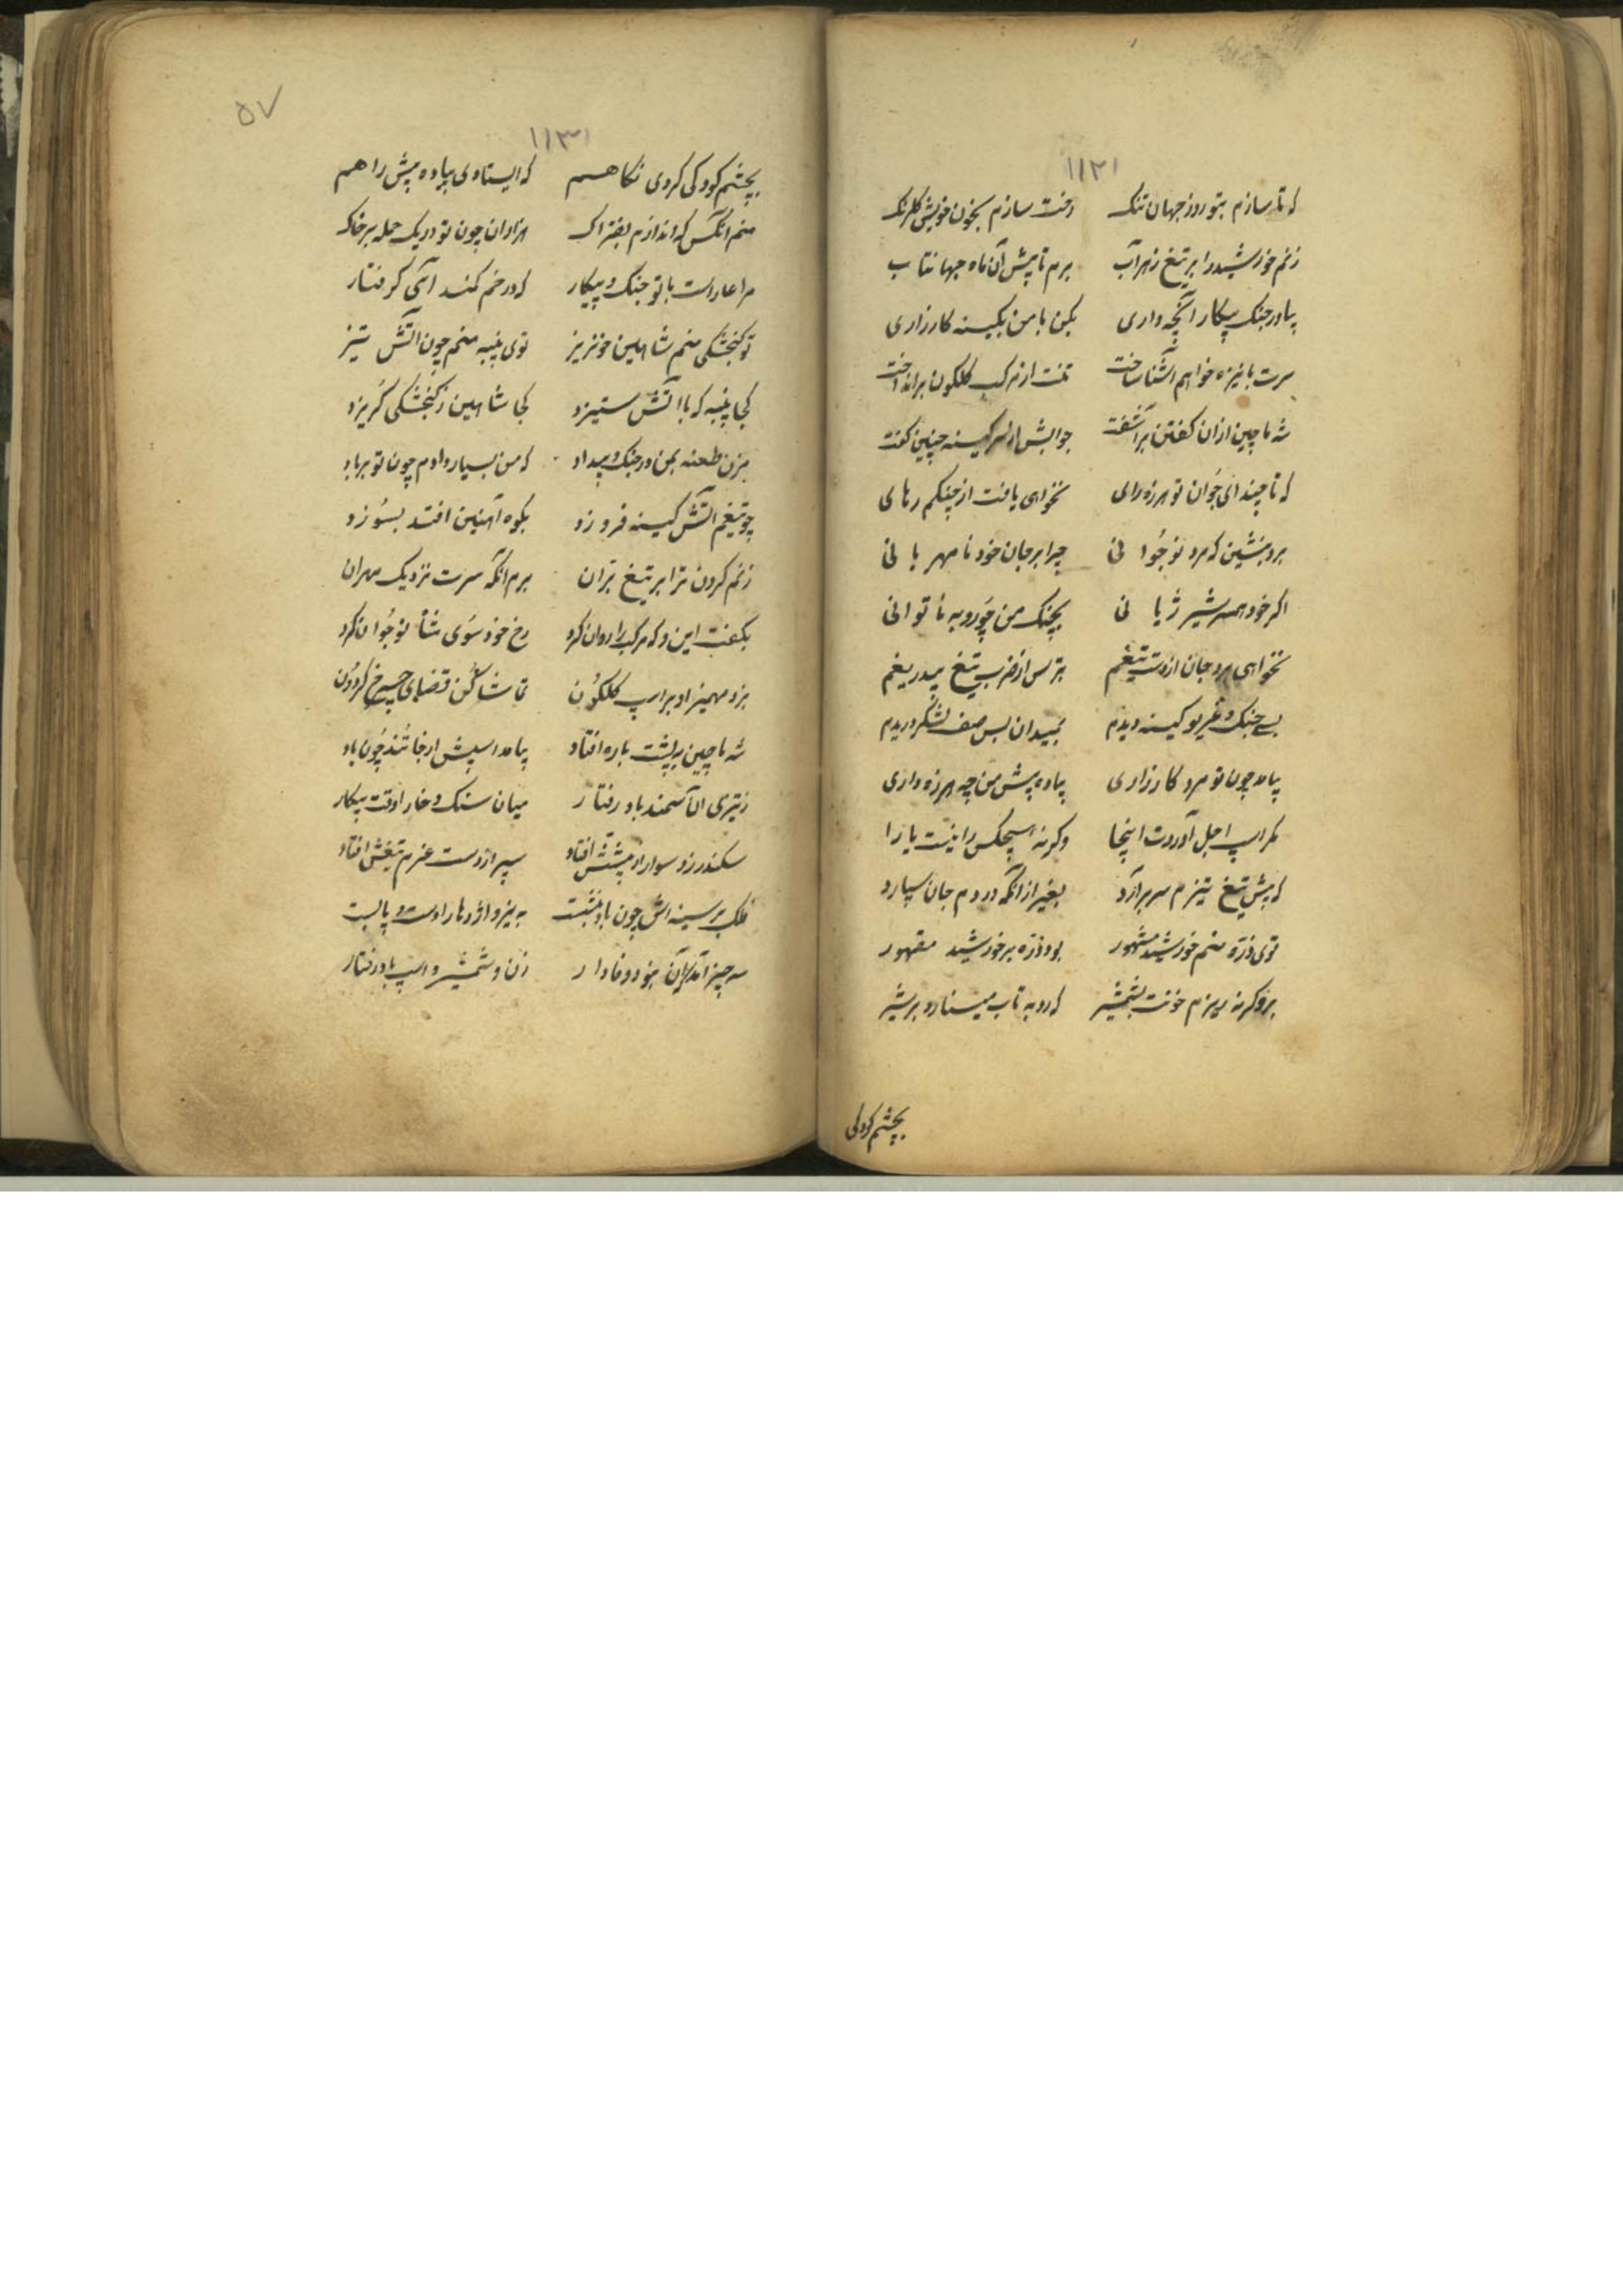 ۱۱۲۱
که تا سازم بتو روز جهان تنک رخت سازم بخون خویش کلرنک
زنم خورشید را بر تیغ زهرآب برم تا پیش آن ماه جهانتاب
بیاور جنک پیکار آنچه داری بکن با من بکینه کارزاری
سرت با نیزه خواهم آشنا ساخت تنت از مرکب کلکون برانداخت
شه ماچین ازان کفتن برآشفت جوابش از سر کینه چنین کفت
که تا چند ای جوان تو هرزه رای نخواهی یافت از چنکم رهای
برو بنشین که مرد نوجوانی چرا بر جان خود نامهربانی
اکر خود همسر شیر ژیانی بچنک من چو روبه ناتوانی
نخواهی برد جان از دست تیغم بترس از ضرب تیغ بیدریغم
بسی جنک و غریو کینه دیدم بمیدان بس صف لشکر دریدم
بیامد چون تو مرد کارزاری پیاده پیش من چه هرزه داری
مکر اسپ اجل آوردت اینجا وکرنه هیچکس را نیست یارا
که پیش تیغ تیزم سر برآرد بغیر از انکه در دم جان سپارد
توی ذره منم خورشید مشهور بود ذره بر خورشید مقهور
برو کرنه بریزم خونت بشمشیر که روبه تاب مینارد بر شیر
بچشم کودکی
۵۷
۱۱۳۱
بچشم کودکی کردی نکاهم که ایستادی پیاده پیش راهم
منم انکس که اندازم بفتراک هزاران چون تو در یک حمله بر خاک
مرا عار است با تو جنک و پیکار که در خم کمند آی کرفتار
تو کنجشکی منم شاهین خونریز توی پنبه منم چون آتش تیز
کجا پنبه که با آتش ستیزد کجا شاهین ز کنجشکی کریزد
مزن طعنه بمن در جنک و بیداد که من بسیار دادم چون تو برباد
چو تیغم آتش کینه فروزد بکوه آهنین افتد بسوزد
زنم کردن ترا بر تیغ بران برم انکه سرت نزدیک مهران
بکفت این و که مرکب را روان کرد رخ خود سوی شاه نوجوان کرد
بزد مهمیز او بر اسپ کلکون تماشا کن قضای چرخ کردون
شه ماچین به پشت باره افتاد بیامد اسپش از جا تند چون باد
ز تیزی آن سمند باد رفتار میان سنک و خار او وقت پیکار
سکندر زد سوار از پشتش افتاد سپر از دست عزم تیغش افتاد
ملک بر سینه اش چون باد بنشست به نیرو اژدها را دست و پا بست
سه چیز آمد بود وفادار زن و شمشیر و اسپ باد رفتار